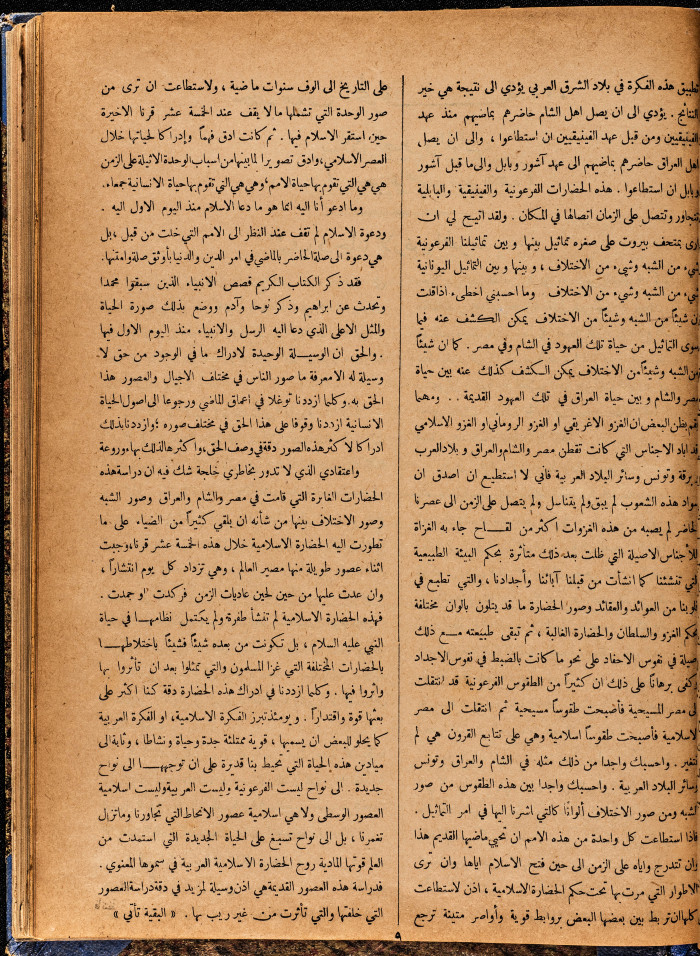 تطبيق هذه الفكرة في بلاد الشرق العربي يؤدي الى نتيجة هي خير
النتائج . يؤدي الى ان يصل اهل الشام حاضرهم بماضيهم منذ عهد
الفينيقيين ومن قبل عهد الفينيقيين ان استطاعوا ، والى ان يصل
اهل العراق حاضرهم بماضيهم الى عهد آشور وبابل والى ما قبل آشور
وبابل ان استطاعوا . هذه الحضارات الفرعونية والفينيقية والبابلية
تتجاور وتتصل على الزمان اتصالها في المكان . ولقد اتيح لي ان
ارى بمتحف بيروت على صغره تماثيل بينها و بين تماثيلنا الفرعونية
شيء من الشبه وشيء من الاختلاف ، و بينها و بين التماثيل اليونانية
شيء من الشبه وشيء من الاختلاف وما احسبني اخطىء اذا قلت
ان شيئاً من الشبه وشيئاً من الاختلاف يمكن الكشف عنه فيما
سوى التماثيل من حياة تلك العهود في الشام وفي مصر . كما ان شيئاً
من الشبه وشيئاً من الاختلاف يمكن الكشف كذلك عنه بين حياة
مصر والشام و بين حياة العراق في تلك العهود القديمة . . ومهما
يظن البعض ان الغزو الاغريقي او الغزو الروماني او الغزو الاسلامي
قد اباد الاجناس التي كانت تقطن مصر والشام والعراق و بلاد العرب
وبرقة وتونس وسائر البلاد العربية فأني لا استطيع ان اصدق ان
سواد هذه الشعوب لم يبق ولم يتناسل ولم يتصل على الزمن الى عصرنا
الحاضر لم يصبه من هذه الغزوات اكثر من لقاح جاء به الغزاة
للأجناس الاصيلة التي ظلت بعد ذلك متأثرة بحكم البيئة الطبيعية
التي تنشئنا كما انشأت من قبلنا آبائنا وأجدادنا ، والتي تطبع في
قلوبنا من العوائد والعقائد وصور الحضارة ما قد يتلون بالوان مختلفة
بحكم الغزو والسلطان والحضارة الغالبة ، ثم تبقى طبيعته مع ذلك
اصيلة في نفوس الاحفاد على نحو ما كانت بالضبط في نفوس الاجداد
وكفى برهاناً على ذلك ان كثيراً من الطقوس الفرعونية قد انتقلت
الى مصر المسيحية فأصبحت طقوساً مسيحية ثم انتقلت الى مصر
الاسلامية فأصبحت طقوساً اسلامية وهي على تتابع القرون هي لم
تتغير . واحسبك واجدا من ذلك مثله في الشام والعراق وتونس
وسائر البلاد العربية . واحسبك واجدا بين هذه الطقوس من صور
الشبه ومن صور الاختلاف ألوانًا كالتي اشرنا اليها في امر التماثيل .
فاذا استطاعت كل واحدة من هذه الامم ان تحيي ماضيها القديم هذا
وان تتدرج واياه على الزمن الى حين فتح الاسلام اياها وان ترى
الاطوار التي مرت بها تحت حكم الحضارة الاسلامية ، اذن لاستطاعت
كلها ان تربط بين بعضها البعض بروابط قوية وأواصر متينة ترجع
على التاريخ الى الوف سنوات ماضية ، ولاستطاعت ان ترى من
صور الوحدة التي تشملها ما لا يقف عند الخمسة عشر قرنا الاخيرة
حين استقر الاسلام فيها . ثم كانت ادق فهماً وإدراكا لحياتها خلال
العصر الاسلامي، وادق تصويرا لما بينها من اسباب الوحدة الاثيلة على الزمن
هي هي التي تقوم بها حياة الامم، وهي هي التي تقوم بها حياة الانسانية جمعاء.
وما ادعو أنا اليه انما هو ما دعا الاسلام منذ اليوم الاول اليه .
ودعوة الاسلام لم تقف عند النظر الى الامم التي خلت من قبل ، بل
هي دعوة الى صلة الحاضر بالماضي في امر الدين والدنيا بأوثق صلة وامتنها.
فقد ذكر الكتاب الكريم قصص الانبياء الذين سبقوا محمدا
وتحدث عن ابراهيم وذكر نوحا وآدم ووضع بذلك صورة الحياة
والمثل الاعلى الذي دعا اليه الرسل والانبياء منذ اليوم الاول فيها
. والحق ان الوسيلة الوحيدة لادراك ما في الوجود من حق لا
وسيلة له الا معرفة ما صور الناس في مختلف الاجيال والعصور هذا
الحق به. وكلما ازددنا توغلا في اعماق الماضي ورجوعا الى اصول الحياة
الانسانية ازددنا وقوفا على هذا الحق في مختلف صوره ؛ وازددنا بذلك
ادراكا لأكثر هذه الصور دقة في وصف الحق، واكثرها لذلك بهاء وروعة
واعتقادي الذي لا تدور بخاطري خلجة شك فيه ان دراسة هذه
الحضارات الغابرة التي قامت في مصر والشام والعراق وصور الشبه
وصور الاختلاف بينها من شأنه ان يلقي كثيراً من الضياء على ما
تطورت اليه الحضارة الاسلامية خلال هذه الخمسة عشر قرنا، وجهت
اثناء عصور طويلة منها مصير العالم ، وهي تزداد كل يوم انتشاراً ،
وان عدت عليها من حين لحين عاديات الزمن فركدت او جمدت .
فهذه الحضارة الاسلامية لم تنشأ طفرة ولم يكتمل نظامها في حياة
النبي عليه السلام ، بل تكونت من بعده شيئاً فشيئاً باختلاطها
بالحضارات المختلفة التي غزا المسلمون والتي تمثلوا بعد ان تأثروا بها
واثروا فيها . وكلما ازددنا في ادراك هذه الحضارة دقة كنا اكثر على
بعثها قوة واقتداراً . ويومئذ تبرز الفكرة الاسلامية، او الفكرة العربية
كما يحلو للبعض ان يسميها ، قوية ممتلئة جدة وحياة ونشاطا ، وثابة الى
ميادين هذه الحياة التي تحيط بنا قديرة على ان توجهها الى نواح
جديدة . الى نواح ليست الفرعونية وليست العربية وليست اسلامية
العصور الوسطى ولا هي اسلامية عصور الانحطاط التي تجاورنا وما تزال
تغمرنا ، بل الى نواح تسبغ على الحياة الجديدة التي استمدت من
العلم قوتها المادية روح الحضارة الاسلامية العربية في سموها المعنوي .
فدراسة هذه العصور القديمة هي اذن وسيلة لمزيد في دقة دراسة العصور
التي خلفتها والتي تأثرت من غير ريب بها . « البقية تأتي »
٩